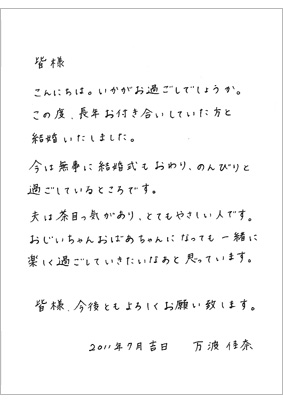 皆様
こんにちは。いかがお過ごしでしょうか。
この度、長年お付き合いしていた方と
結婚いたしました。
今は無事に結婚式もおわり、のんびりと
過ごしているところです。
夫は茶目っ気があり、とてもやさしい人です。
おじいちゃんおばあちゃんになっても一緒に
楽しく過ごしていきたいなあと思っています。
皆様、今後ともよろしくお願い致します。
2011年7月吉日　万渡 佳奈